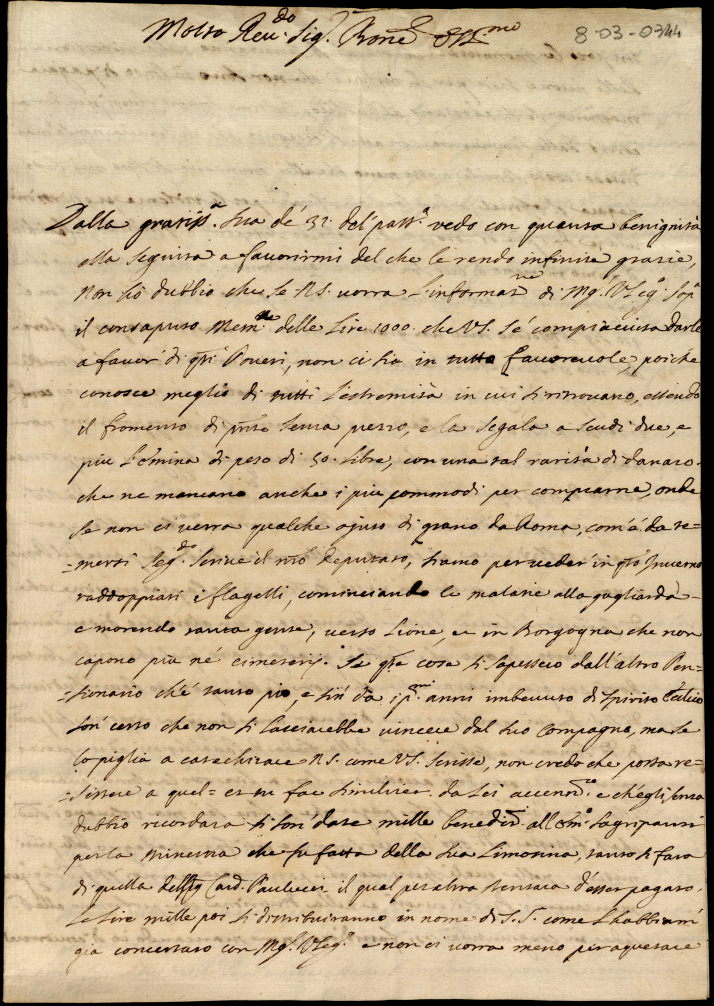 Molto Reu.do Sig.r Prone
8-03-0344
Dalla gratiss.a sua de' 31. del pass.o vedo con quanta benignità
ella seguita a favorirmi del che le rendo infinite grazie,
Non hò dubbio che se N.S. vorra l'informat.ne di Mg.r V.Leg.o sop.a
il consaputo Mem.le delle lire 1000. che V.S. s'é compiacciuta darle
a favor' di q.ti Poveri, non ci sia in tutto favorevole, poiche
conosce meglio di tutti l'estremità in cui si ritrovano, essendo
il fromento di p.nte senza prezzo, e la segala a scudi due, e
piu l'emina di peso di 50. libre, con una tal rarità di danaro
che ne mancano anche i piu commodi per comprarne, onde
se non ci verra qualche ajuto di grano da Roma, com'é da te=
=mersi seg.do scrive il n.ro Deputato, siamo per veder' in q.to Inverno
raddoppiati i flagelli, cominciando le malatie alla gagliarda
e morendo tanta gente, verso Lione, et in Borgogna che non
capono piu né cimeterij. Se q.te cose si sapessero dall'altro Pen=
=sionario ch'é tanto pio, e sin' da i p.mi anni imbevuto di spirito
son' certo che non si lasciarebbe vincere dal suo Compagno, ma se
lo piglia a catechizare N.S. come V.S. scrisse, non credo che possa re=
=sistere a quel= et tu fac similiter. da Lei accenn.o e ch'egli senza
dubbio ricordara si son' date mille bened.ni all'Em.o Sagripanti
per la minestra che fu fatta della sua limosina, tanto si fara
di quella del Sig Card. Paulucci il qual per altro stentara d'esser pagato.
Le lire mille poi si distribuiranno in nome di S.S. come l'habbiam'
gia concertato con Mg.r V.Leg.o e non ci vorra meno per aquetare